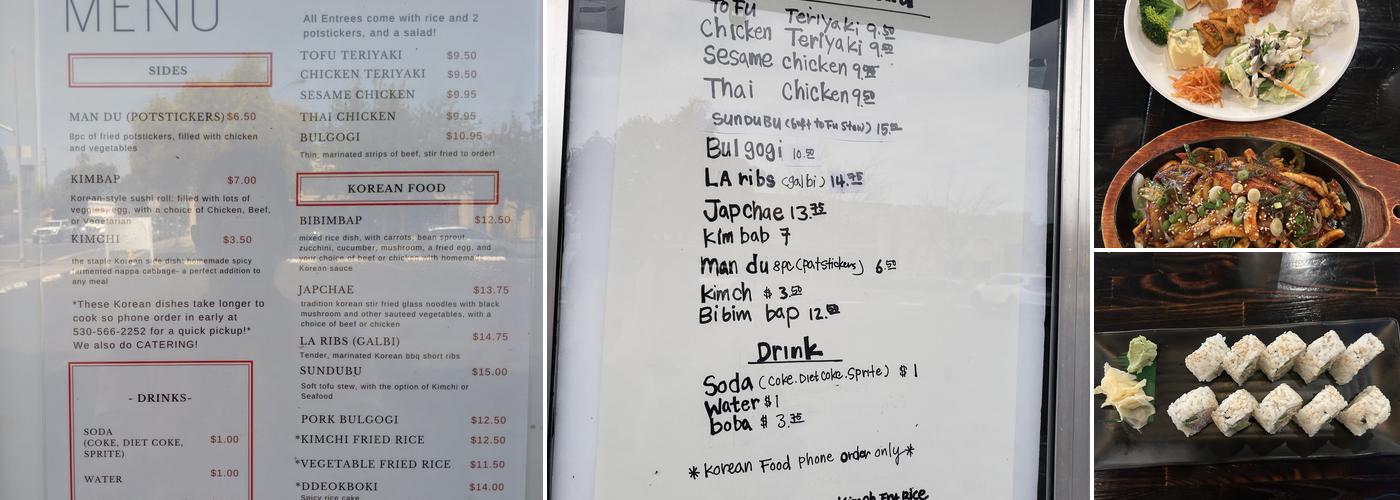 MENU
SIDES
MAN DU (POTSTICKERS) $6.50
8pc of fried potstickers, filled with chicken
and vegetables
KIMBAP $7.00
Korean-style sushi roll: filled with lots of
veggies, egg, with a choice of Chicken, Beef,
or Vegetarian
KIMCHI $3.50
the staple Korean side dish: homemade spicy
fermented nappa cabbage- a perfect addition to
any meal
*These Korean dishes take longer to
cook so phone order in early at
530-566-2252 for a quick pickup!*
We also do CATERING!
- DRINKS-
SODA
(COKE, DIET COKE, $1.00
SPRITE)
WATER $1.00
All Entrees come with rice and 2
potstickers, and a salad!
TOFU TERIYAKI $9.50
CHICKEN TERIYAKI $9.50
SESAME CHICKEN $9.95
THAI CHICKEN $9.95
BULGOGI $10.95
Thin, marinated strips of beef, stir fried to order!
KOREAN FOOD
BIBIMBAP $12.50
mixed rice dish, with carrots, bean sprout,
zucchini, cucumber, mushroom, a fried egg, and
your choice of beef or chicken with homemade
Korean sauce
JAPCHAE $13.75
tradition korean stir fried glass noodles with black
mushroom and other sauteed vegetables, with a
choice of beef or chicken
LA RIBS (GALBI) $14.75
Tender, marinated Korean bbq short ribs
SUNDUBU $15.00
Soft tofu stew, with the option of Kimchi or
Seafood
PORK BULGOGI $12.50
*KIMCHI FRIED RICE $12.50
*VEGETABLE FRIED RICE $11.50
*DDEOKBOKI $14.00
Spicy rice cake
TOFU Teriyaki 9.50
Chicken Teriyaki 9.50
Sesame chicken 9.95
Thai Chicken 9.50
SUNDUBU (Soft toFu Stow) 15.00
Bulgogi 10.50
LA ribs (galbi) 14.75
Japchae 13.75
kim bab 7
man du 8pc (potstickers) 6.50
kimch $ 3.50
Bibim bap 12.50
Drink
Soda (Coke. Diet Coke. Sprite) $ 1
Water $1
boba $ 3.75
* Korean Food phone order only *
Kimch Frt Rice